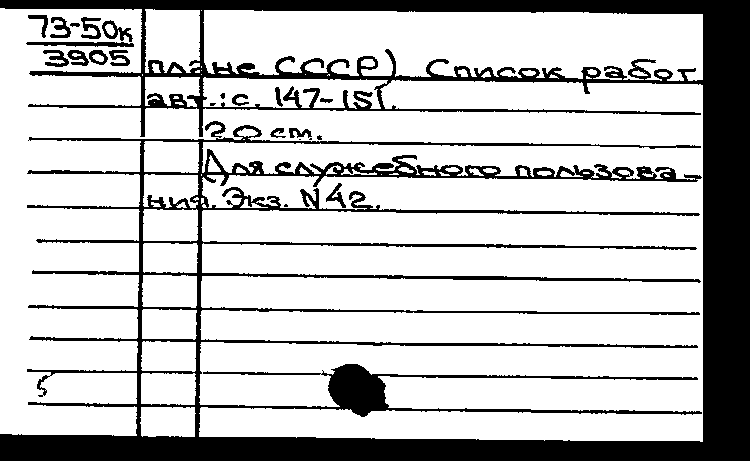 73-50к
3905
плане СССР) Список работ
авт.: с. 147-151.
20 см.
Для служебного пользова-
ния. Экз. №42.
5